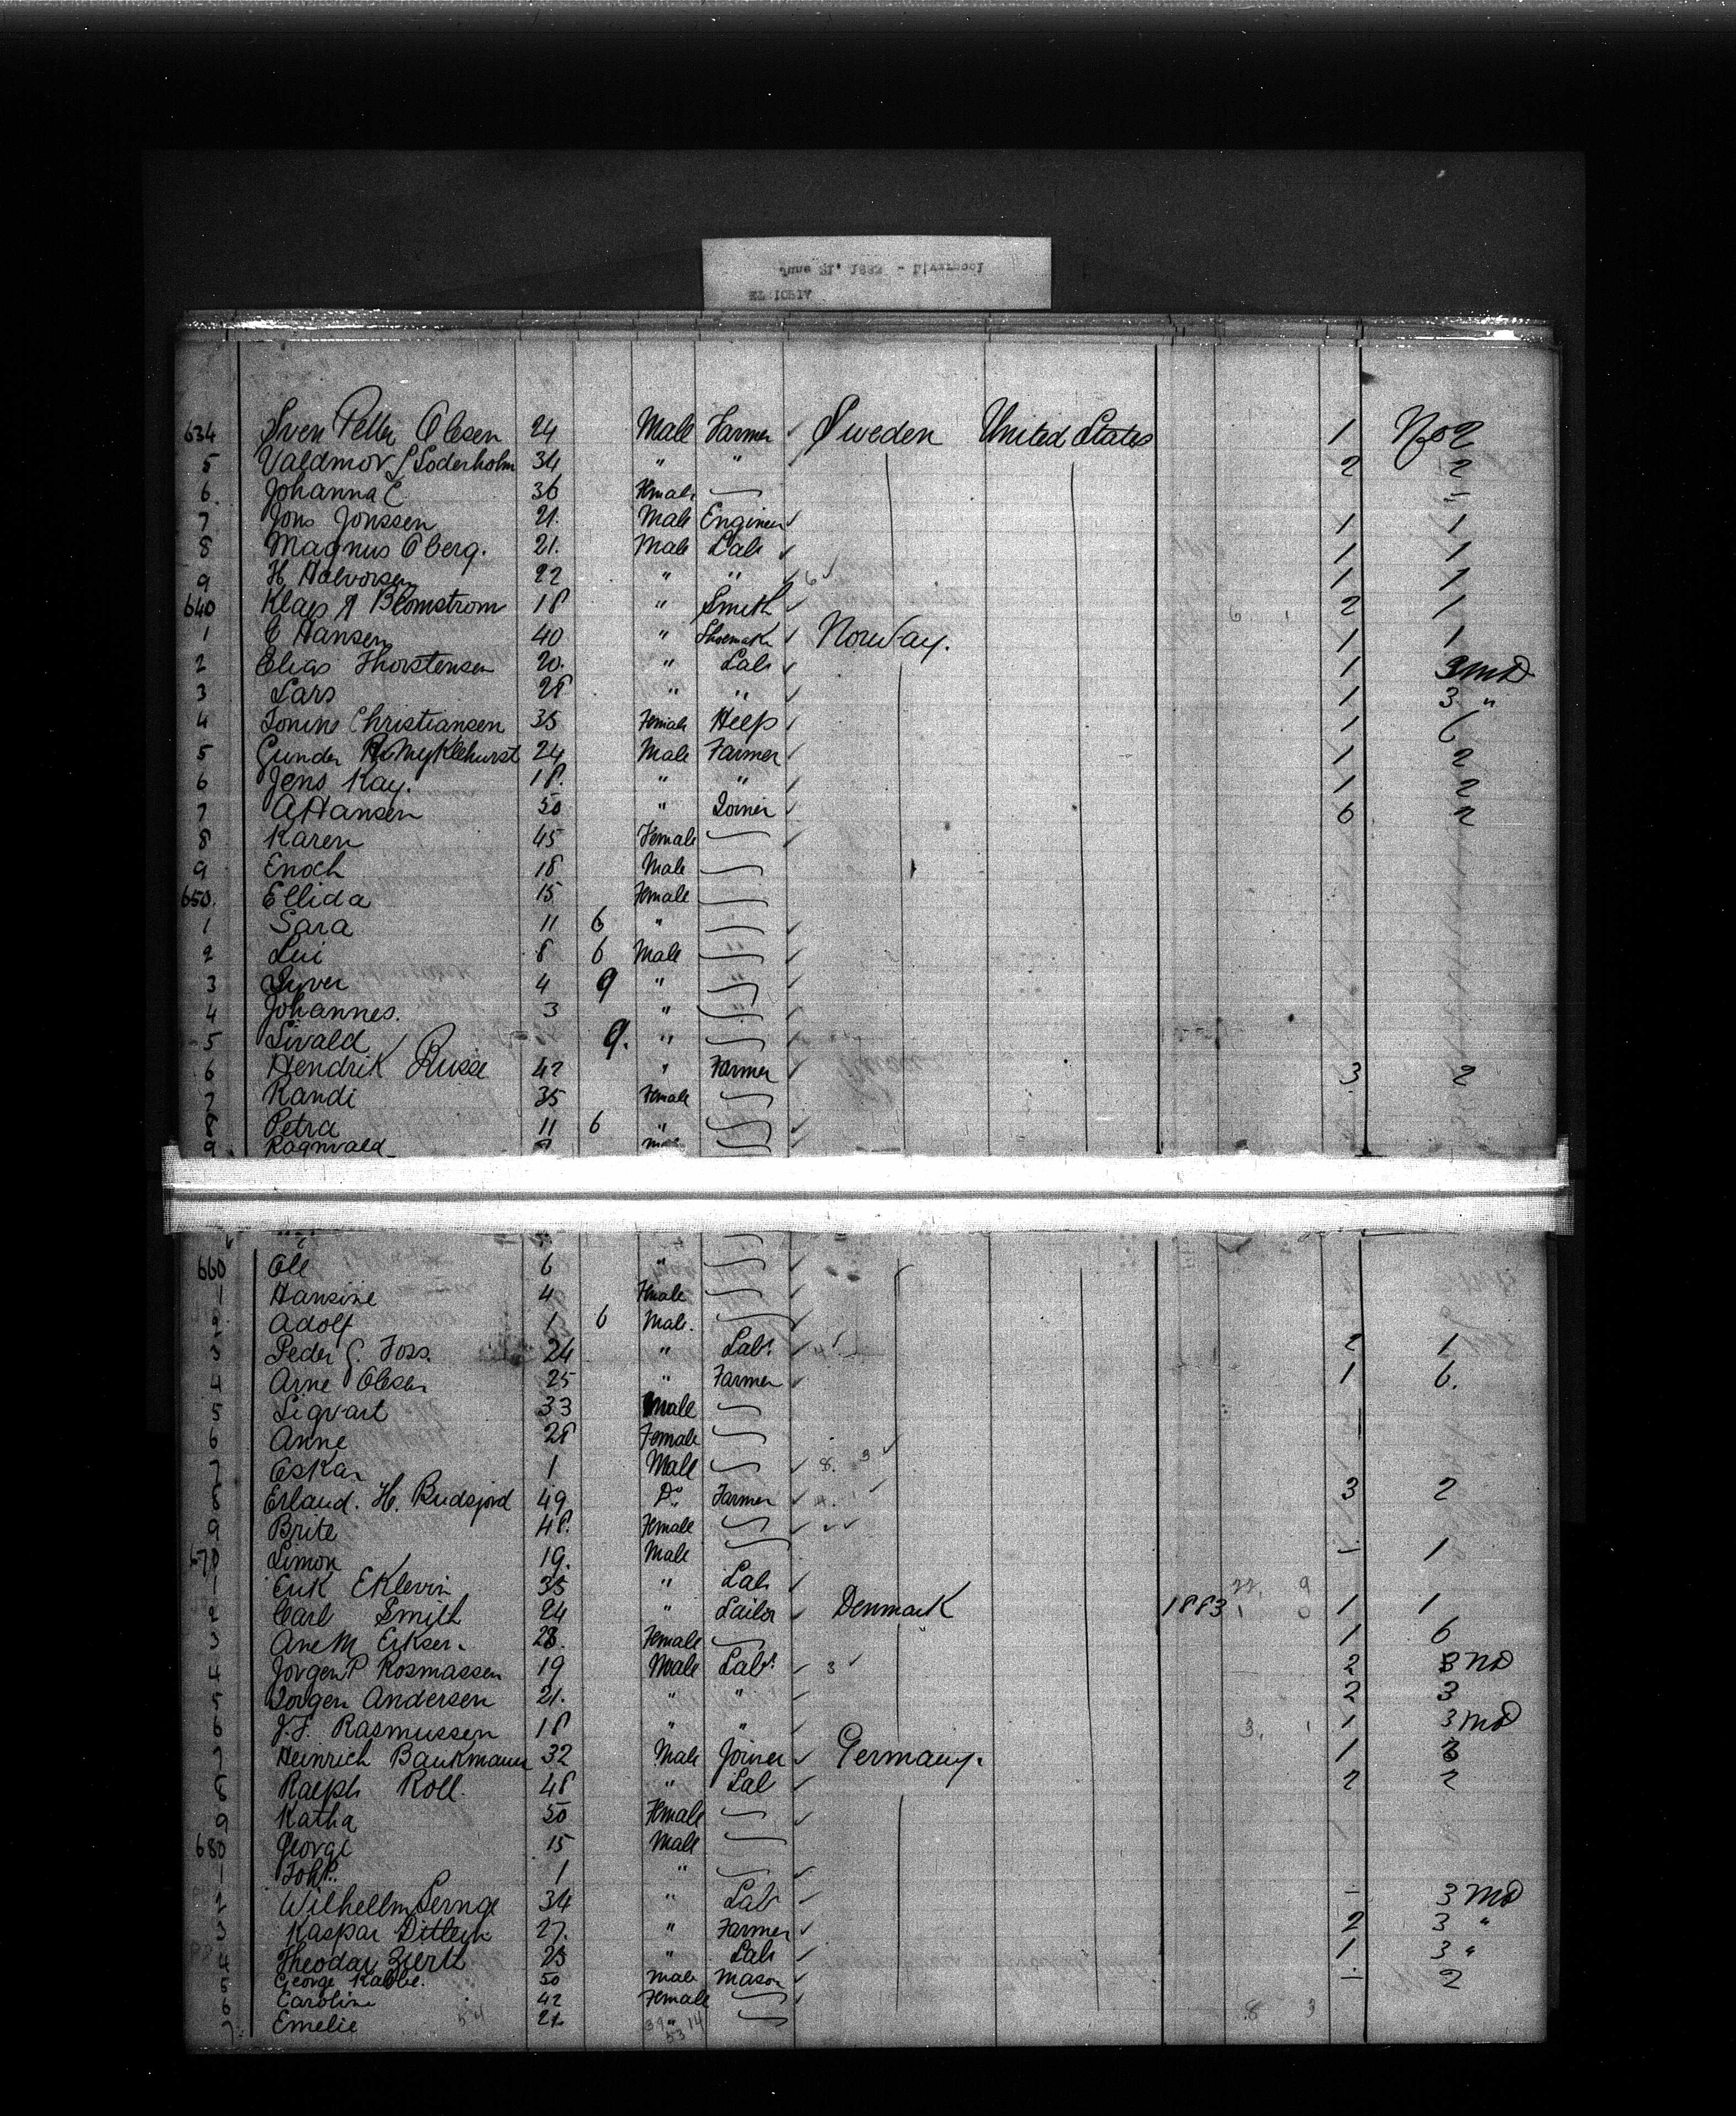 634 Sven Petter Olesen 24 Male Farmer ✓ Sweden United States 1 No 2
5 Valdmor S Soderholm 34 " " 2 2
6. Johanna C 36 Female —
7 Jons Jonssen 21. Male Engineer ✓ 1 1
8 Magnus Oberg. 21. Male Lab ✓ 1 1
9 H. Halvorsen 22 " " 6 ✓ 1 1
640 Klaes A Blomstrom 18 " Smith ✓ 6 1 2 1
1 C Hansen 40 " Shoemak ✓ Norway. 1 1
2 Elias Thorstensen 20. " Lab ✓ 1 3 md
3 Lars 28 " " ✓ 1 3 "
4 Tonine Christiansen 35 Female Help ✓ 1 6
5 Gunder Myklehurst 24 Male Farmer ✓ 1 2
6 Jens Kay. 18. " " ✓ 1 2
7 A Hansen 50 " Joiner ✓ 6 2
8 Karen 45 Female — ✓
9 Enoch 18 Male —
650. Ellida 15 Female —
1 Sara 11 6 " — ✓
2 Lui 8 6 Male — ✓
3 Syver 4 9 " — ✓
4 Johannes. 3 " — ✓
5 Sivald 9. " — ✓
6 Hendrik Russe 42 " Farmer ✓ 3 2
7 Randi 35 Female —
8 Petra 11 6 " — ✓
9 Ragnvald
660 Ole 6 " — ✓
1 Hansine 4 Female — ✓
2 Adolf 1 6 Male. — ✓
3 Peder C. Foss. 24 " Labr ✓ 4 ✓ 2 1
4 Arne Olesen 25 " Farmer ✓ 1 6.
5 Sigvart 33 Male —
6 Anne 28 Female —
7 Oskar 1 Male — ✓ 8. 3 ✓
8 Erland. H. Rudsjord 49 Do Farmer ✓ 4. ✓ 3 2
9 Brite 48. Female — ✓ ✓ ✓
670 Simon 19. Male — – 1
1 Erik Eklevin 35 " Lab ✓ 22. 9
2 Carl Smith 24 " Tailor ✓ Denmark 1883 1 0 1 1
3 Ane M Erksen. 28. Female — 1 6
4 Jorgen P Rosmassen 19 Male Labr ✓ 3 ✓ 2 3 md
5 Jorgen Andersen 21. " " ✓ 2 3
6 J. F. Rasmussen 18 " " ✓ 3. 1 1 3 md
7 Heinrich Baukmann 32 Male Joiner ✓ Germany. 1 3
8 Ralph Roll. 48 " Lab ✓ 2 2
9 Katha 50 Female — ✓
680 George 15 Male —
1 Joh P. 1 " — ✓
2 Wilhellm Sernge 34 " Lab ✓ – 3 md
3 Kaspar Ditlejk 27. " Farmer ✓ 2 3 "
4 Theodar Zierk 23 " Lab ✓ 1 3 "
5 George Kabbe. 50 Male Mason ✓ – 2
6 Caroline 42 Female — ✓
7 Emelie 54 21 " — 8 3
39 14
53